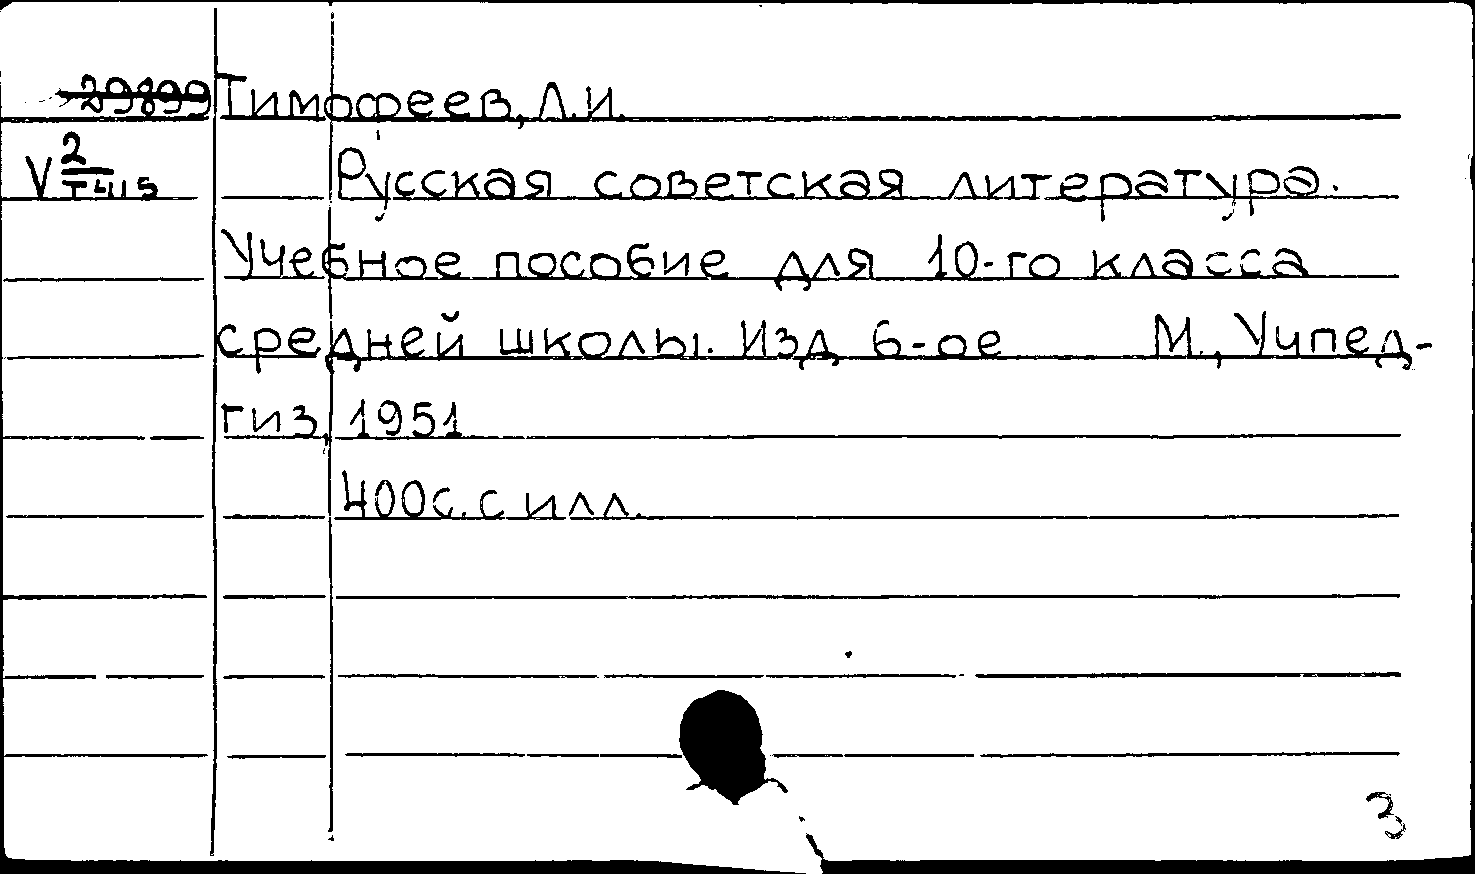 29899 Тимофеев, Л.И.
V 2/Т415 Русская советская литература.
Учебное пособие для 10-го класса
средней школы. Изд 6-ое М., Учпед-
гиз, 1951
400с. с илл.
3